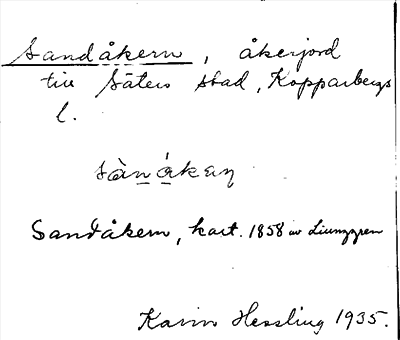 Sandåkern, åkerjord
till Säters stad, Kopparbergs
l.
sànákaɳ
Sandåkern, kart. 1858 av Ljunggren
Karin Hessling 1935.